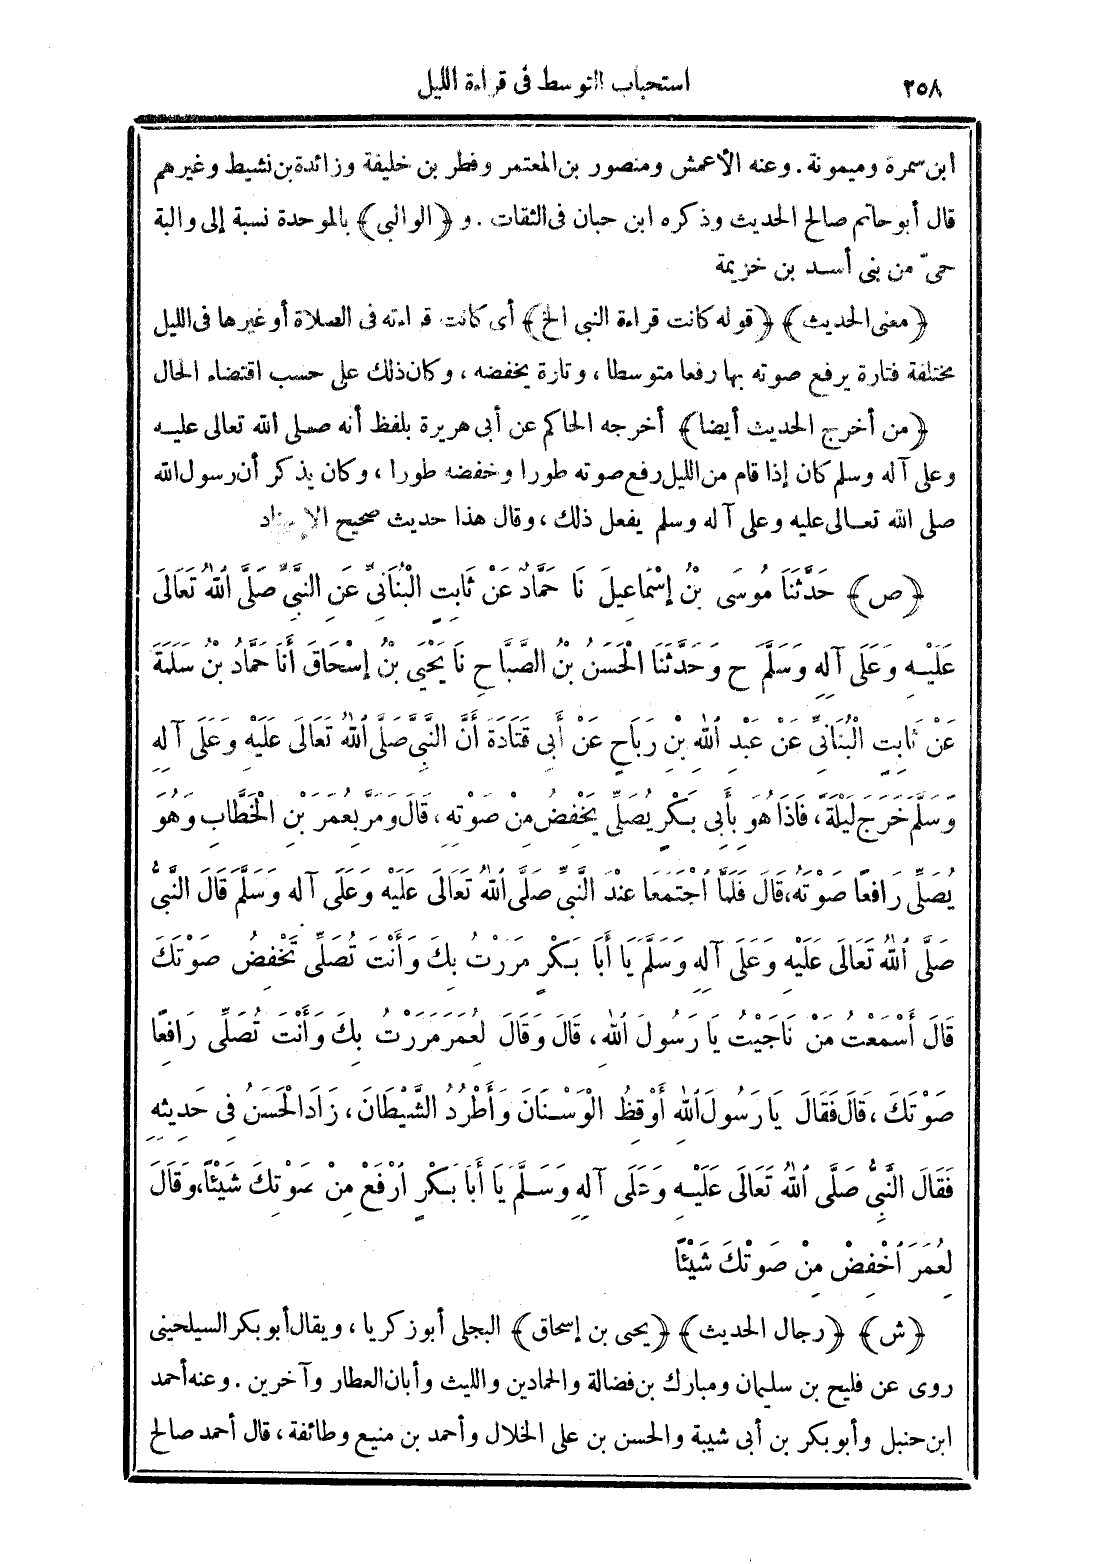 ٢٥٨
استحباب التوسط فى قراءة الليل
ابن سمرة وميمونة. وعنه الأعمش ومنصور بن المعتمر وفطر بن خليفة وزائدة بن نشيط وغيرهم
قال أبو حاتم صالح الحديث وذكره ابن حبان فى الثقات. و ﴿الوالبى﴾ بالموحدة نسبة إلى والبة
حىّ من بنى أسد بن خزيمة
﴿معنى الحديث﴾ ﴿قوله كانت قراءة النبى الخ﴾ أى كانت قراءته فى الصلاة أو غيرها فى الليل
مختلفة فتارة يرفع صوته بها رفعا متوسطا، وتارة يخفضه، وكان ذلك على حسب اقتضاء الحال
﴿من أخرج الحديث أيضا﴾ أخرجه الحاكم عن أبى هريرة بلفظ أنه صلى الله تعالى عليه
وعلى آله وسلم كان إذا قام من الليل رفع صوته طورا وخفضه طورا، وكان يذكر أن رسول الله
صلى الله تعالى عليه وعلى آله وسلم يفعل ذلك، وقال هذا حديث صحيح الإسناد
﴿ص﴾ حَدَّثَنَا مُوسَى بْنُ إِسْمَاعِيلَ نَا حَمَّادٌ عَنْ ثَابِتٍ الْبُنَانِيِّ عَنِ النَّبِيِّ صَلَّى اللهُ تَعَالَى
عَلَيْهِ وَعَلَى آلِهِ وَسَلَّمَ ح وَحَدَّثَنَا الْحَسَنُ بْنُ الصَّبَّاحِ نَا يَحْيَى بْنُ إِسْحَاقَ أَنَا حَمَّادُ بْنُ سَلَمَةَ
عَنْ ثَابِتٍ الْبُنَانِيِّ عَنْ عَبْدِ اللهِ بْنِ رَبَاحٍ عَنْ أَبِي قَتَادَةَ أَنَّ النَّبِيَّ صَلَّى اللهُ تَعَالَى عَلَيْهِ وَعَلَى آلِهِ
وَسَلَّمَ خَرَجَ لَيْلَةً، فَاذَا هُوَ بِأَبِي بَكْرٍ يُصَلِّي يَخْفِضُ مِنْ صَوْتِهِ، قَالَ وَمَرَّ بِعُمَرَ بْنِ الْخَطَّابِ وَهُوَ
يُصَلِّي رَافِعًا صَوْتَهُ، قَالَ فَلَمَّا اجْتَمَعَا عِنْدَ النَّبِيِّ صَلَّى اللهُ تَعَالَى عَلَيْهِ وَعَلَى آلِهِ وَسَلَّمَ قَالَ النَّبِيُّ
صَلَّى اللهُ تَعَالَى عَلَيْهِ وَعَلَى آلِهِ وَسَلَّمَ يَا أَبَا بَكْرٍ مَرَرْتُ بِكَ وَأَنْتَ تُصَلِّي تَخْفِضُ صَوْتَكَ
قَالَ أَسْمَعْتُ مَنْ نَاجَيْتُ يَا رَسُولَ اللهِ، قَالَ وَقَالَ لِعُمَرَ مَرَرْتُ بِكَ وَأَنْتَ تُصَلِّي رَافِعًا
صَوْتَكَ، قَالَ فَقَالَ يَا رَسُولَ اللهِ أُوقِظُ الْوَسْنَانَ وَأَطْرُدُ الشَّيْطَانَ، زَادَ الْحَسَنُ فِي حَدِيثِهِ
فَقَالَ النَّبِيُّ صَلَّى اللهُ تَعَالَى عَلَيْهِ وَعَلَى آلِهِ وَسَلَّمَ يَا أَبَا بَكْرٍ ارْفَعْ مِنْ صَوْتِكَ شَيْئًا، وَقَالَ
لِعُمَرَ اخْفِضْ مِنْ صَوْتِكَ شَيْئًا
﴿ش﴾ ﴿رجال الحديث﴾ ﴿يحيى بن إسحاق﴾ البجلى أبو زكريا، ويقال أبو بكر السيلحينى
روى عن فليح بن سليمان ومبارك بن فضالة والحمادين والليث وأبان العطار وآخرين. وعنه أحمد
ابن حنبل وأبو بكر بن أبى شيبة والحسن بن على الخلال وأحمد بن منيع وطائفة، قال أحمد صالح